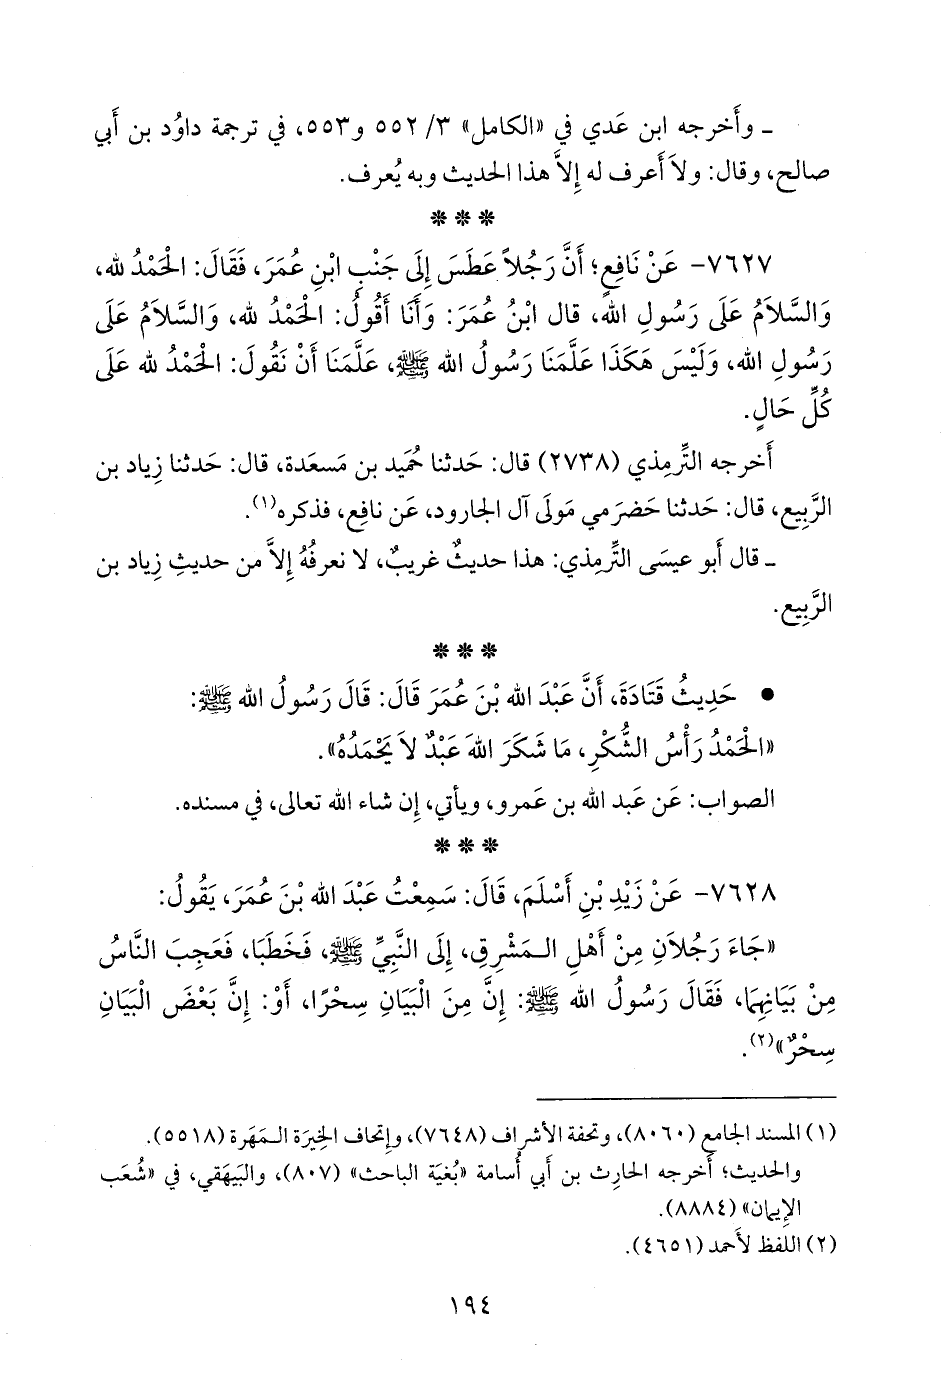 ـ وأَخرجه ابن عَدي في «الكامل» ٣/ ٥٥٢ و٥٥٣، في ترجمة داوُد بن أَبي
صالح، وقال: ولاَ أَعرف له إِلاَّ هذا الحديث وبه يُعرف.
* * *
٧٦٢٧- عَنْ نَافِعٍ؛ أَنَّ رَجُلاً عَطَسَ إِلَى جَنْبِ ابْنِ عُمَرَ، فَقَالَ: الْحَمْدُ لله،
وَالسَّلاَمُ عَلَى رَسُولِ الله، قال ابْنُ عُمَرَ: وَأَنَا أَقُولُ: الْحَمْدُ لله، وَالسَّلاَمُ عَلَى
رَسُولِ الله، وَلَيْسَ هَكَذَا عَلَّمَنَا رَسُولُ الله ﷺ، عَلَّمَنَا أَنْ نَقُولَ: الْحَمْدُ لله عَلَى
كُلِّ حَالٍ.
أَخرجه التِّرمِذي (٢٧٣٨) قال: حَدثنا حُميد بن مَسعَدة، قال: حَدثنا زياد بن
الرَّبِيع، قال: حَدثنا حَضرَمي مَولَى آل الجارود، عَن نافِع، فذكره(١).
ـ قال أَبو عيسَى التِّرمِذي: هذا حديثٌ غريبٌ، لا نعرفُهُ إِلاَّ من حديثِ زِياد بن
الرَّبِيع.
* * *
● حَدِيثُ قَتَادَةَ، أَنَّ عَبْدَ الله بْنَ عُمَرَ قَالَ: قَالَ رَسُولُ الله ﷺ:
«الْحَمْدُ رَأْسُ الشُّكْرِ، مَا شَكَرَ اللهَ عَبْدٌ لاَ يَحْمَدُهُ».
الصواب: عَن عَبد الله بن عَمرو، ويأتي، إِن شاء الله تعالى، في مسنده.
* * *
٧٦٢٨- عَنْ زَيْدِ بْنِ أَسْلَمَ، قَالَ: سَمِعْتُ عَبْدَ الله بْنَ عُمَرَ، يَقُولُ:
«جَاءَ رَجُلاَنِ مِنْ أَهْلِ الـمَشْرِقِ، إِلَى النَّبِيِّ ﷺ، فَخَطَبَا، فَعَجِبَ النَّاسُ
مِنْ بَيَانِهِمَا، فَقَالَ رَسُولُ الله ﷺ: إِنَّ مِنَ الْبَيَانِ سِحْرًا، أَوْ: إِنَّ بَعْضَ الْبَيَانِ
سِحْرٌ»(٢).
(١) المسند الجامع (٨٠٦٠)، وتحفة الأشراف (٧٦٤٨)، وإتحاف الخِيرَة الـمَهَرة (٥٥١٨).
والحديث؛ أَخرجه الحارِث بن أَبي أُسامة «بُغيَة الباحث» (٨٠٧)، والبَيهَقي، في «شُعَب
الإِيمان» (٨٨٨٤).
(٢) اللفظ لأَحمد (٤٦٥١).
١٩٤